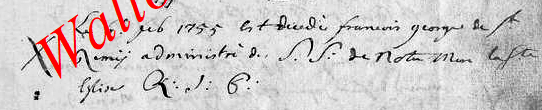 Walle
Le feb 1755 est decedé francois george de st
Remij administré des S. S. de Notre Mere la ste
Eglise R: J: P: